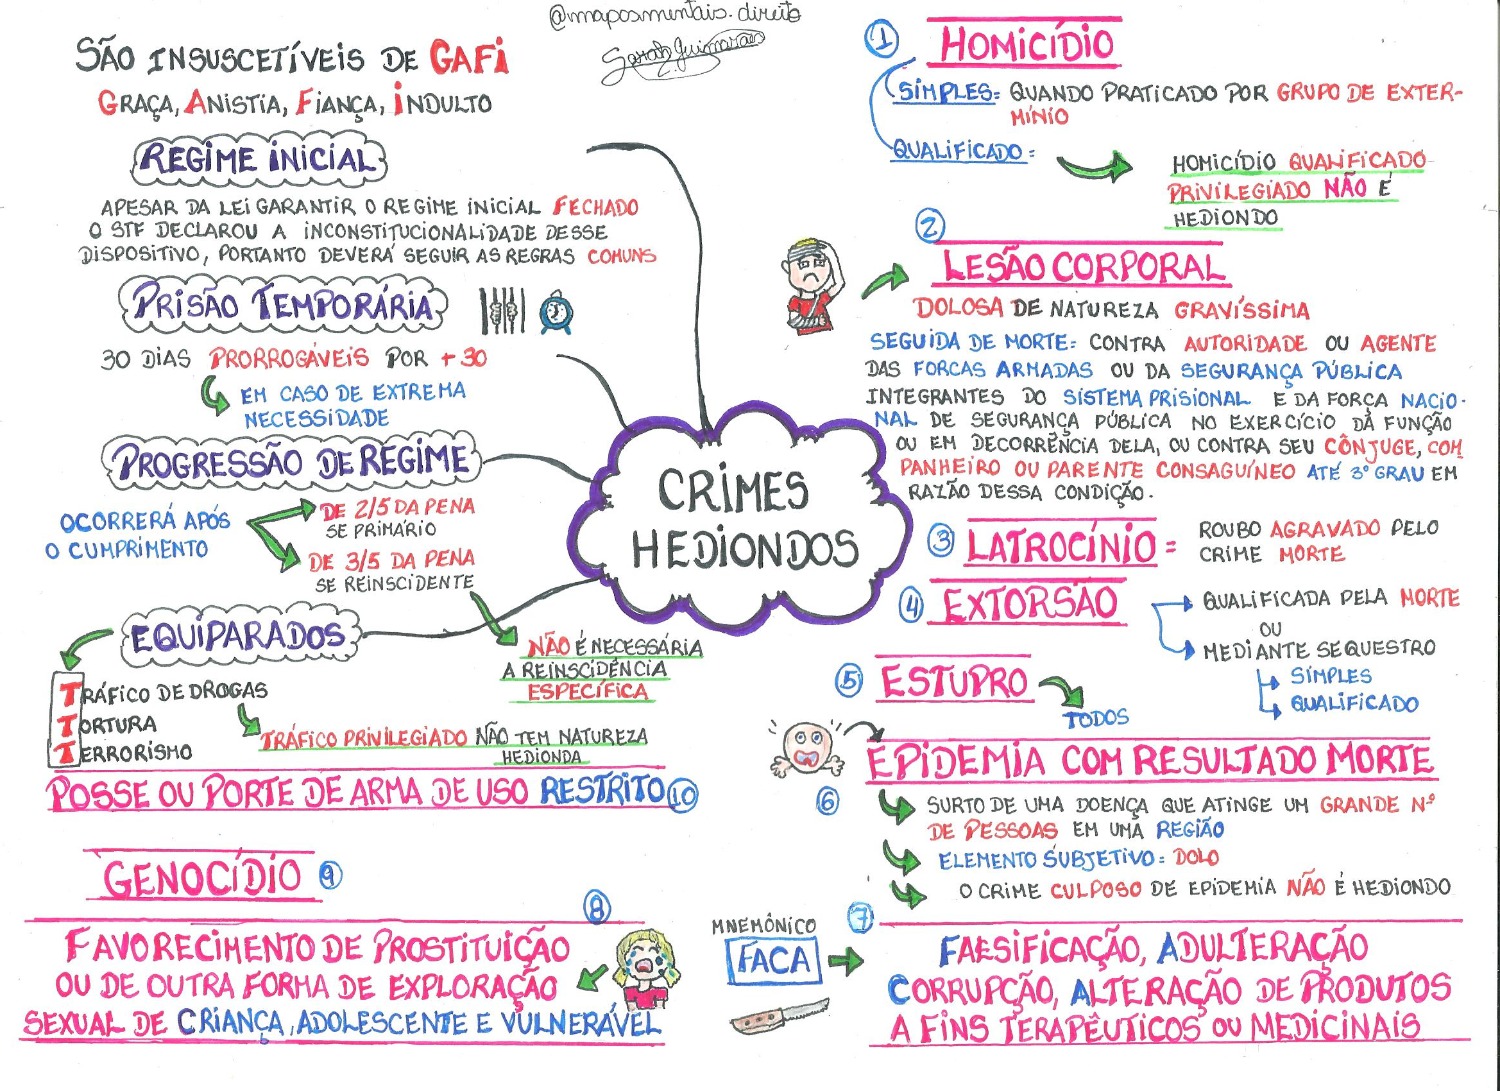 @maposmentais.direito
Sarah Guimarães
SÃO INSUSCETÍVEIS DE GAFI
GRAÇA, ANISTIA, FIANÇA, INDULTO
REGIME INICIAL
APESAR DA LEI GARANTIR O REGIME INICIAL FECHADO
O STF DECLAROU A INCONSTITUCIONALIDADE DESSE
DISPOSITIVO, PORTANTO DEVERÁ SEGUIR AS REGRAS COMUNS
PRISÃO TEMPORÁRIA
30 DIAS PRORROGÁVEIS POR + 30
EM CASO DE EXTREMA
NECESSIDADE
PROGRESSÃO DE REGIME
OCORRERÁ APÓS
O CUMPRIMENTO
DE 2/5 DA PENA
SE PRIMÁRIO
DE 3/5 DA PENA
SE REINSCIDENTE
NÃO É NECESSÁRIA
A REINSCIDÊNCIA
ESPECÍFICA
EQUIPARADOS
TRÁFICO DE DROGAS
TORTURA
TERRORISMO
TRÁFICO PRIVILEGIADO NÃO TEM NATUREZA
HEDIONDA
CRIMES
HEDIONDOS
1 HOMICÍDIO
SIMPLES: QUANDO PRATICADO POR GRUPO DE EXTER-
MÍNIO
QUALIFICADO:
HOMICÍDIO QUALIFICADO
PRIVILEGIADO NÃO É
HEDIONDO
2
LESÃO CORPORAL
DOLOSA DE NATUREZA GRAVÍSSIMA
SEGUIDA DE MORTE: CONTRA AUTORIDADE OU AGENTE
DAS FORCAS ARMADAS OU DA SEGURANÇA PÚBLICA
INTEGRANTES DO SISTEMA PRISIONAL E DA FORÇA NACIO-
NAL DE SEGURANÇA PÚBLICA NO EXERCÍCIO DA FUNÇÃO
OU EM DECORRÊNCIA DELA, OU CONTRA SEU CÔNJUGE, COM
PANHEIRO OU PARENTE CONSAGUÍNEO ATÉ 3º GRAU EM
RAZÃO DESSA CONDIÇÃO.
3 LATROCÍNIO = ROUBO AGRAVADO PELO
CRIME MORTE
4 EXTORSÃO
QUALIFICADA PELA MORTE
OU
MEDIANTE SEQUESTRO
SIMPLES
QUALIFICADO
5 ESTUPRO
TODOS
6
EPIDEMIA COM RESULTADO MORTE
SURTO DE UMA DOENÇA QUE ATINGE UM GRANDE Nº
DE PESSOAS EM UMA REGIÃO
ELEMENTO SUBJETIVO: DOLO
O CRIME CULPOSO DE EPIDEMIA NÃO É HEDIONDO
7
MNEMÔNICO
FACA
FALSIFICAÇÃO, ADULTERAÇÃO
CORRUPÇÃO, ALTERAÇÃO DE PRODUTOS
A FINS TERAPÊUTICOS OU MEDICINAIS
8
FAVORECIMENTO DE PROSTITUIÇÃO
OU DE OUTRA FORMA DE EXPLORAÇÃO
SEXUAL DE CRIANÇA, ADOLESCENTE E VULNERÁVEL
GENOCÍDIO 9
POSSE OU PORTE DE ARMA DE USO RESTRITO 10